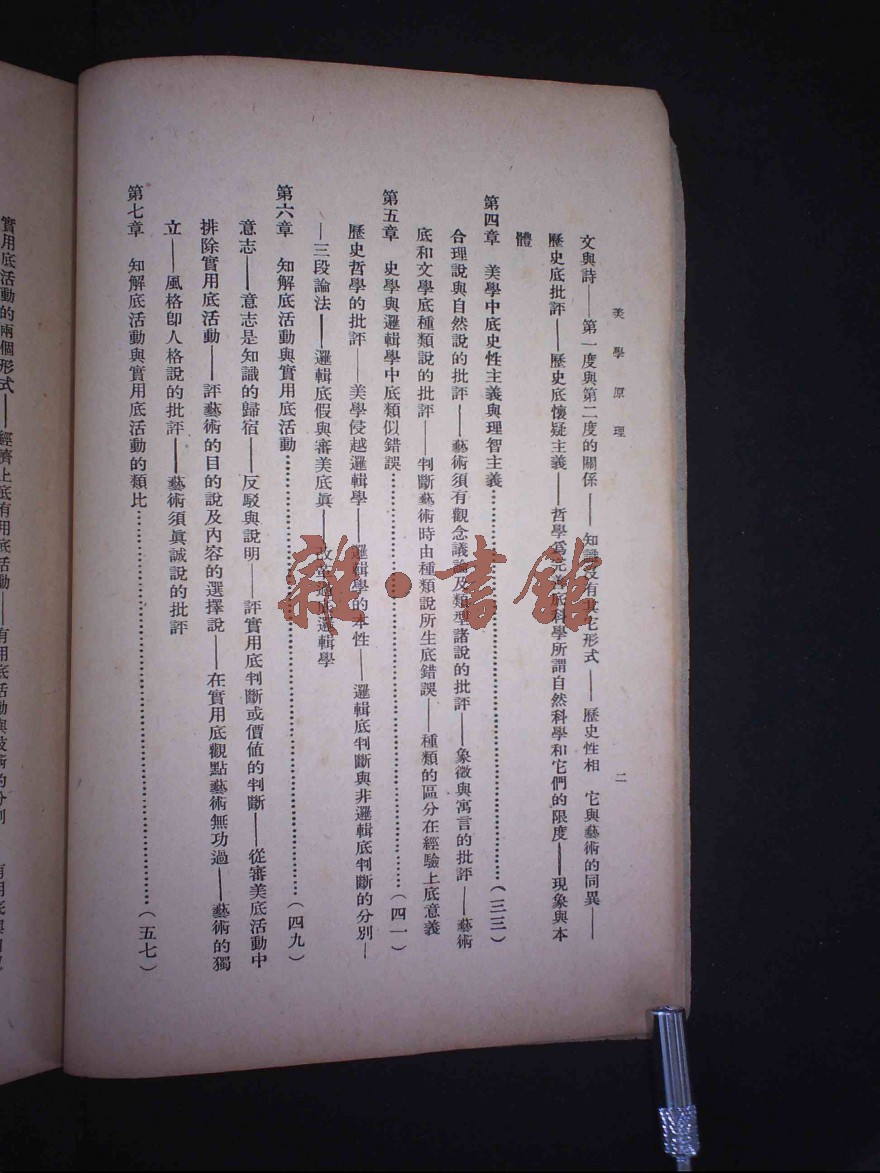 美學原理
二
文與詩——第一度與第二度的關係——知識沒有其它形式——歷史性相 它與藝術的同異——
歷史底批評——歷史底懷疑主義——哲學爲完善底科學所謂自然科學和它們的限度——現象與本
體
第四章 美學中底史性主義與理智主義……(三三)
合理說與自然說的批評——藝術須有觀念議論及類型諸說的批評——象徵與寓言的批評——藝術
底和文學底種類說的批評——判斷藝術時由種類說所生底錯誤——種類的區分在經驗上底意義
第五章 史學與邏輯學中底類似錯誤……(四一)
歷史哲學的批評——美學侵越邏輯學——邏輯學的本性——邏輯底判斷與非邏輯底判斷的分別—
—三段論法——邏輯底假與審美底眞——改革過底邏輯學
第六章 知解底活動與實用底活動……(四九)
意志——意志是知識的歸宿——反駁與說明——評實用底判斷或價值的判斷——從審美底活動中
排除實用底活動——評藝術的目的說及內容的選擇說——在實用底觀點藝術無功過——藝術的獨
立——風格卽人格說的批評——藝術須眞誠說的批評
第七章 知解底活動與實用底活動的類比……(五七)
實用底活動的兩個形式——經濟上底有用底活動——有用底活動與技術的分別
雜·書館